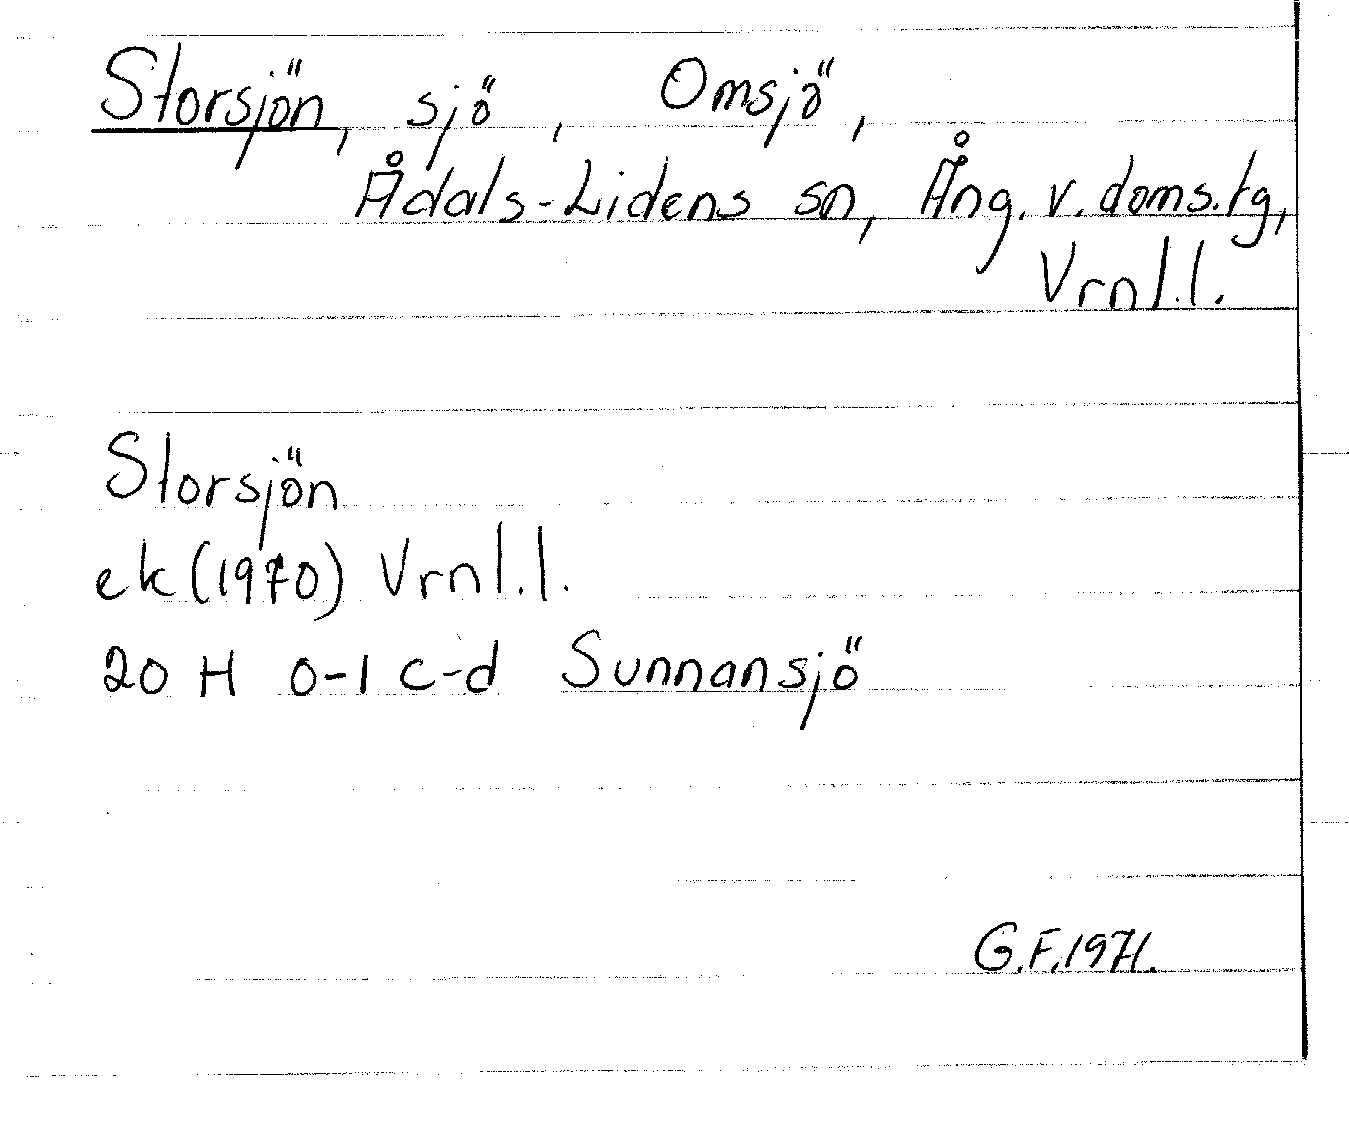 Storsjön, sjö, Omsjö,
Ådals-Lidens sn, Ång. v. doms.tg,
Vrnl.l.
Storsjön
ek (1970) Vrnl.l.
20 H 0-1 c-d Sunnansjö
G.F.1971.